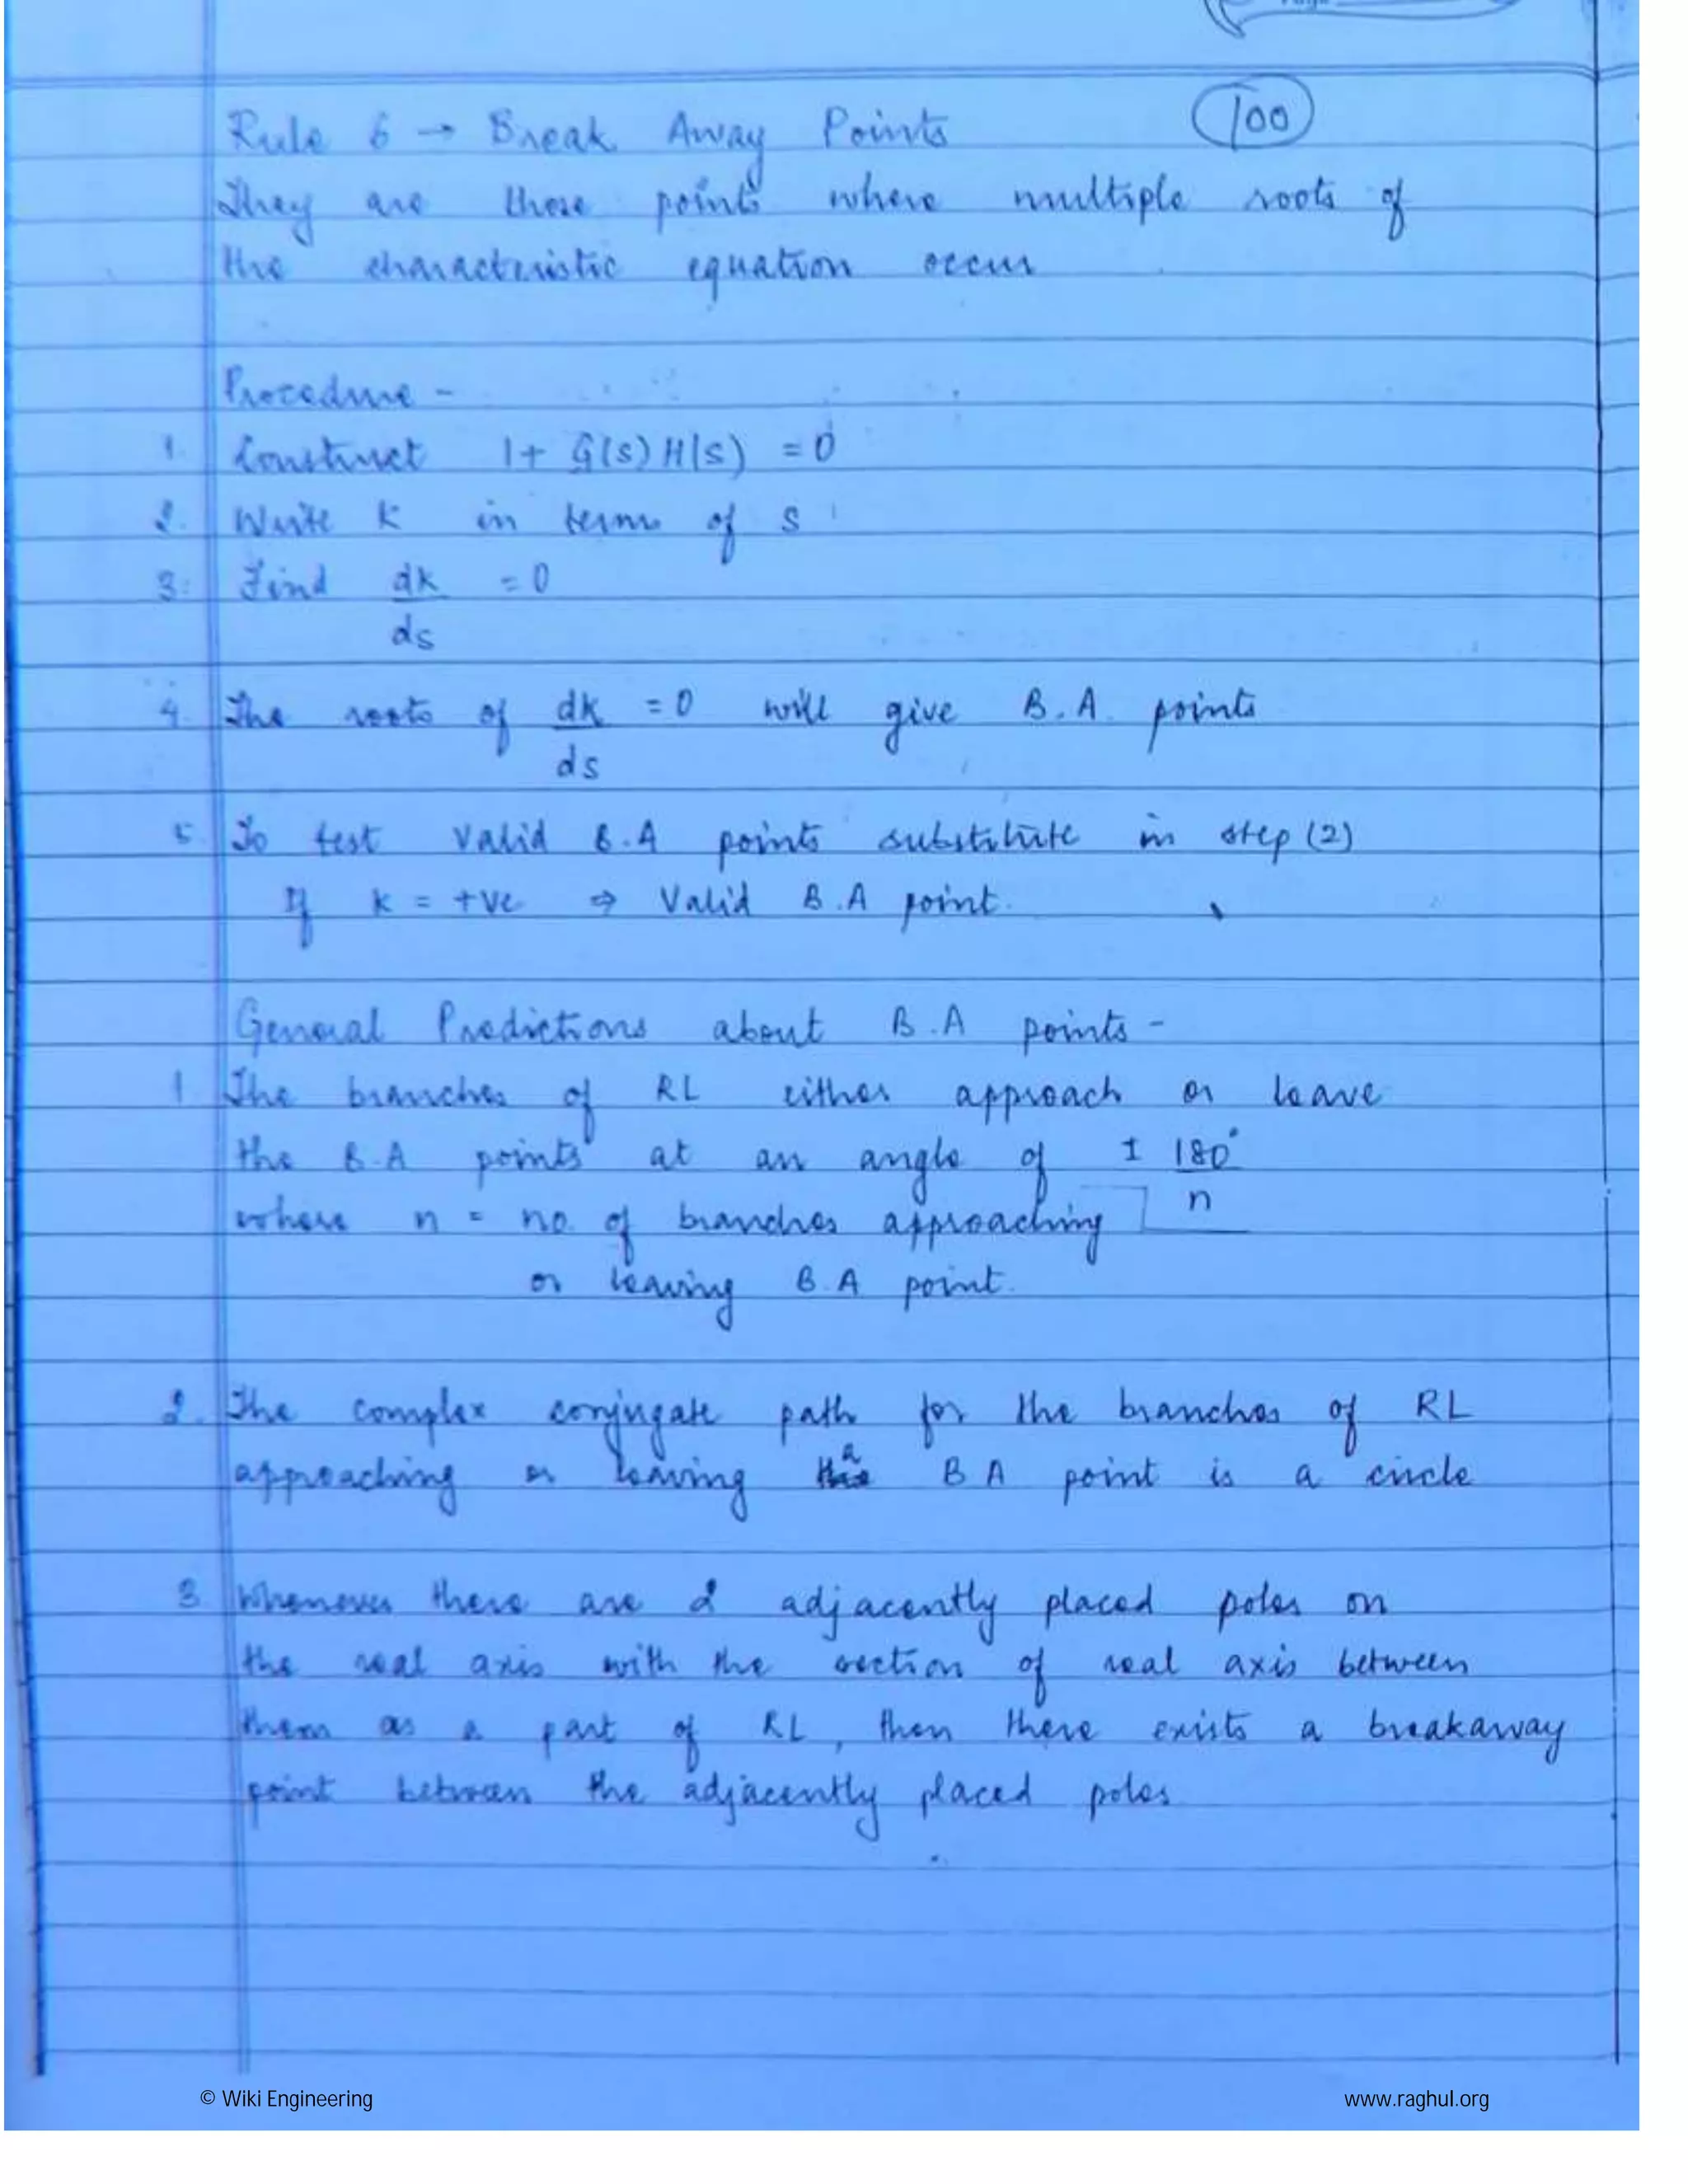 Rule 6 → Break Away Points
100
They are those points where multiple roots of
the characteristic equation occur
Procedure -
1. Construct 1 + G(s) H(s) = 0
2. Write K in terms of s
3. Find dk/ds = 0
4. The roots of dk/ds = 0 will give B.A. points
5. To test valid B.A points substitute in step (2)
If k = +ve ⇒ Valid B.A point.
General Predictions about B.A points -
1. The branches of RL either approach or leave
the B.A points at an angle of ± 180°/n
where n = no. of branches approaching
or leaving B.A point.
2. The complex conjugate path for the branches of RL
approaching or leaving a B A point is a circle
3. Whenever there are 2 adjacently placed poles on
the real axis with the section of real axis between
them as a part of RL, then there exists a breakaway
point between the adjacently placed poles
© Wiki Engineering
www.raghul.org